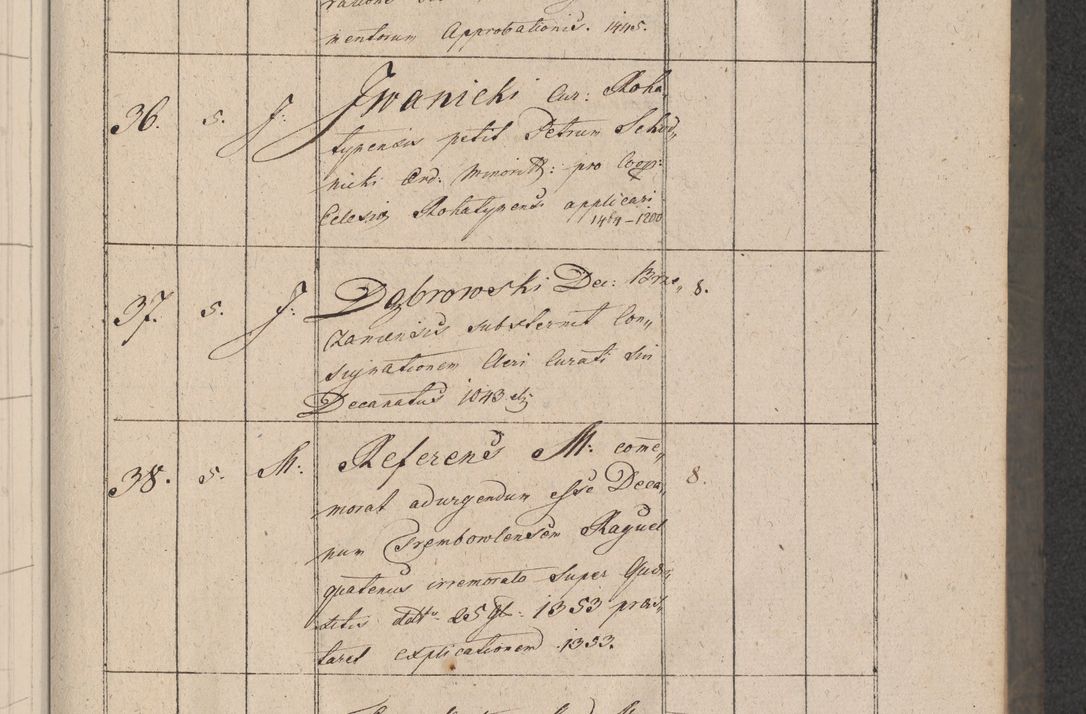 mentorum Approbationis. 1445.
36. 5. J: Iwanicki Cur: Roha„
tynensis petit Petrum Scho„
nicki Ord: Minorit: pro Coopr:
Eclesiæ Rohatynensi applicari.
1464–1200
37. 5. J: Dąbrowski Dec: Brze„ 8.
zaniensis substernit Con„
signationem Cleri Curati sui
Decanatus 1043
38. 5. M: Referens M: com̄e„ 8.
morat adurgendum esse Deca„
num Trembowlensem Raguel
quatenus irremorato super Quæ„
sitis 25 1353 præs„
taret explicationem 1353.